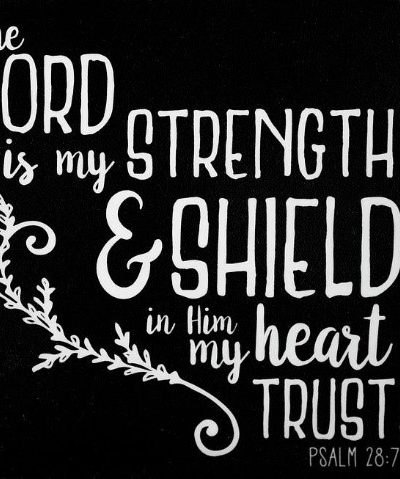 he
ORD
is my STRENGTH
& SHIELD
in Him
my heart
TRUST
PSALM 28:7